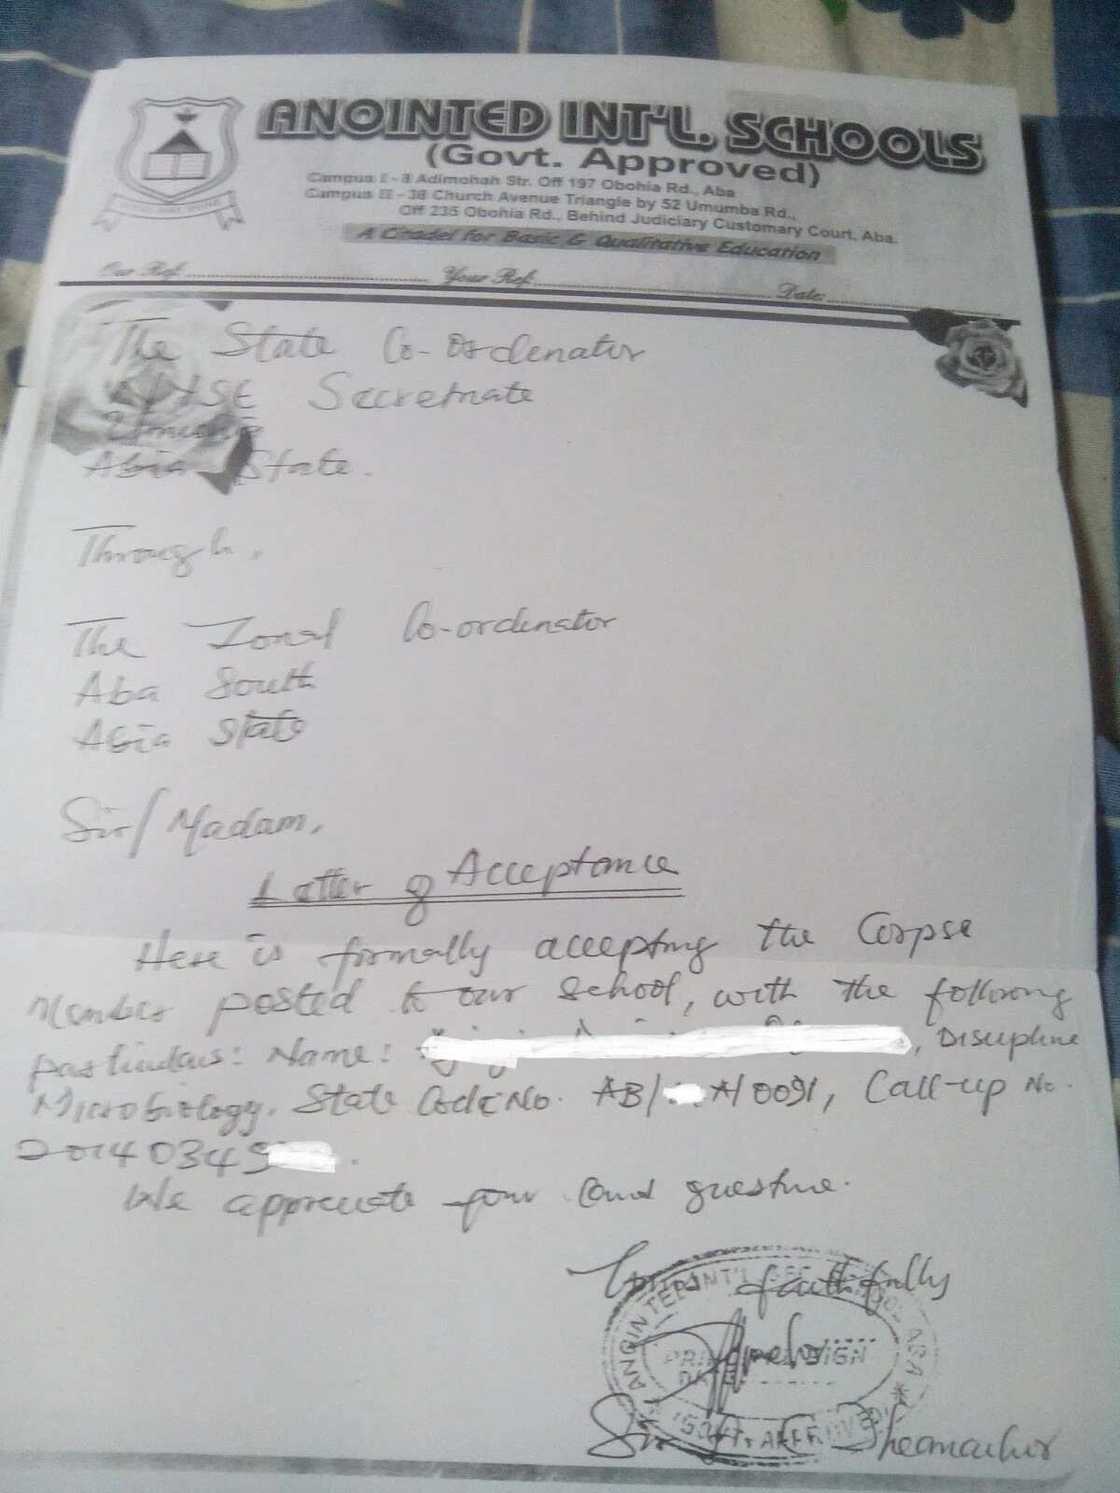 ANOINTED INT'L. SCHOOLS
(Govt. Approved)
Campus I - 8 Adimohah Str. Off 197 Obohia Rd., Aba
Campus II - 38 Church Avenue Triangle by 52 Umumba Rd.,
Off 235 Obohia Rd., Behind Judiciary Customary Court, Aba.
A Citadel for Basic & Qualitative Education
Our Ref. Your Ref. Date:
The State Co-ordenator
Secretriate
Abia State.
Through,
The Zonal Co-ordenator
Aba South
Abia State
Sir/Madam,
Letter of Acceptance
Here is formally accepting the Corpse
Member posted to our school, with the following
particulars: Name: , Discipline
Microbiology. State Code No. AB/ A/0091, Call-up No.
20140349 .
We appreciate your
Yours faithfully
GOVT. APPROVED
Sir